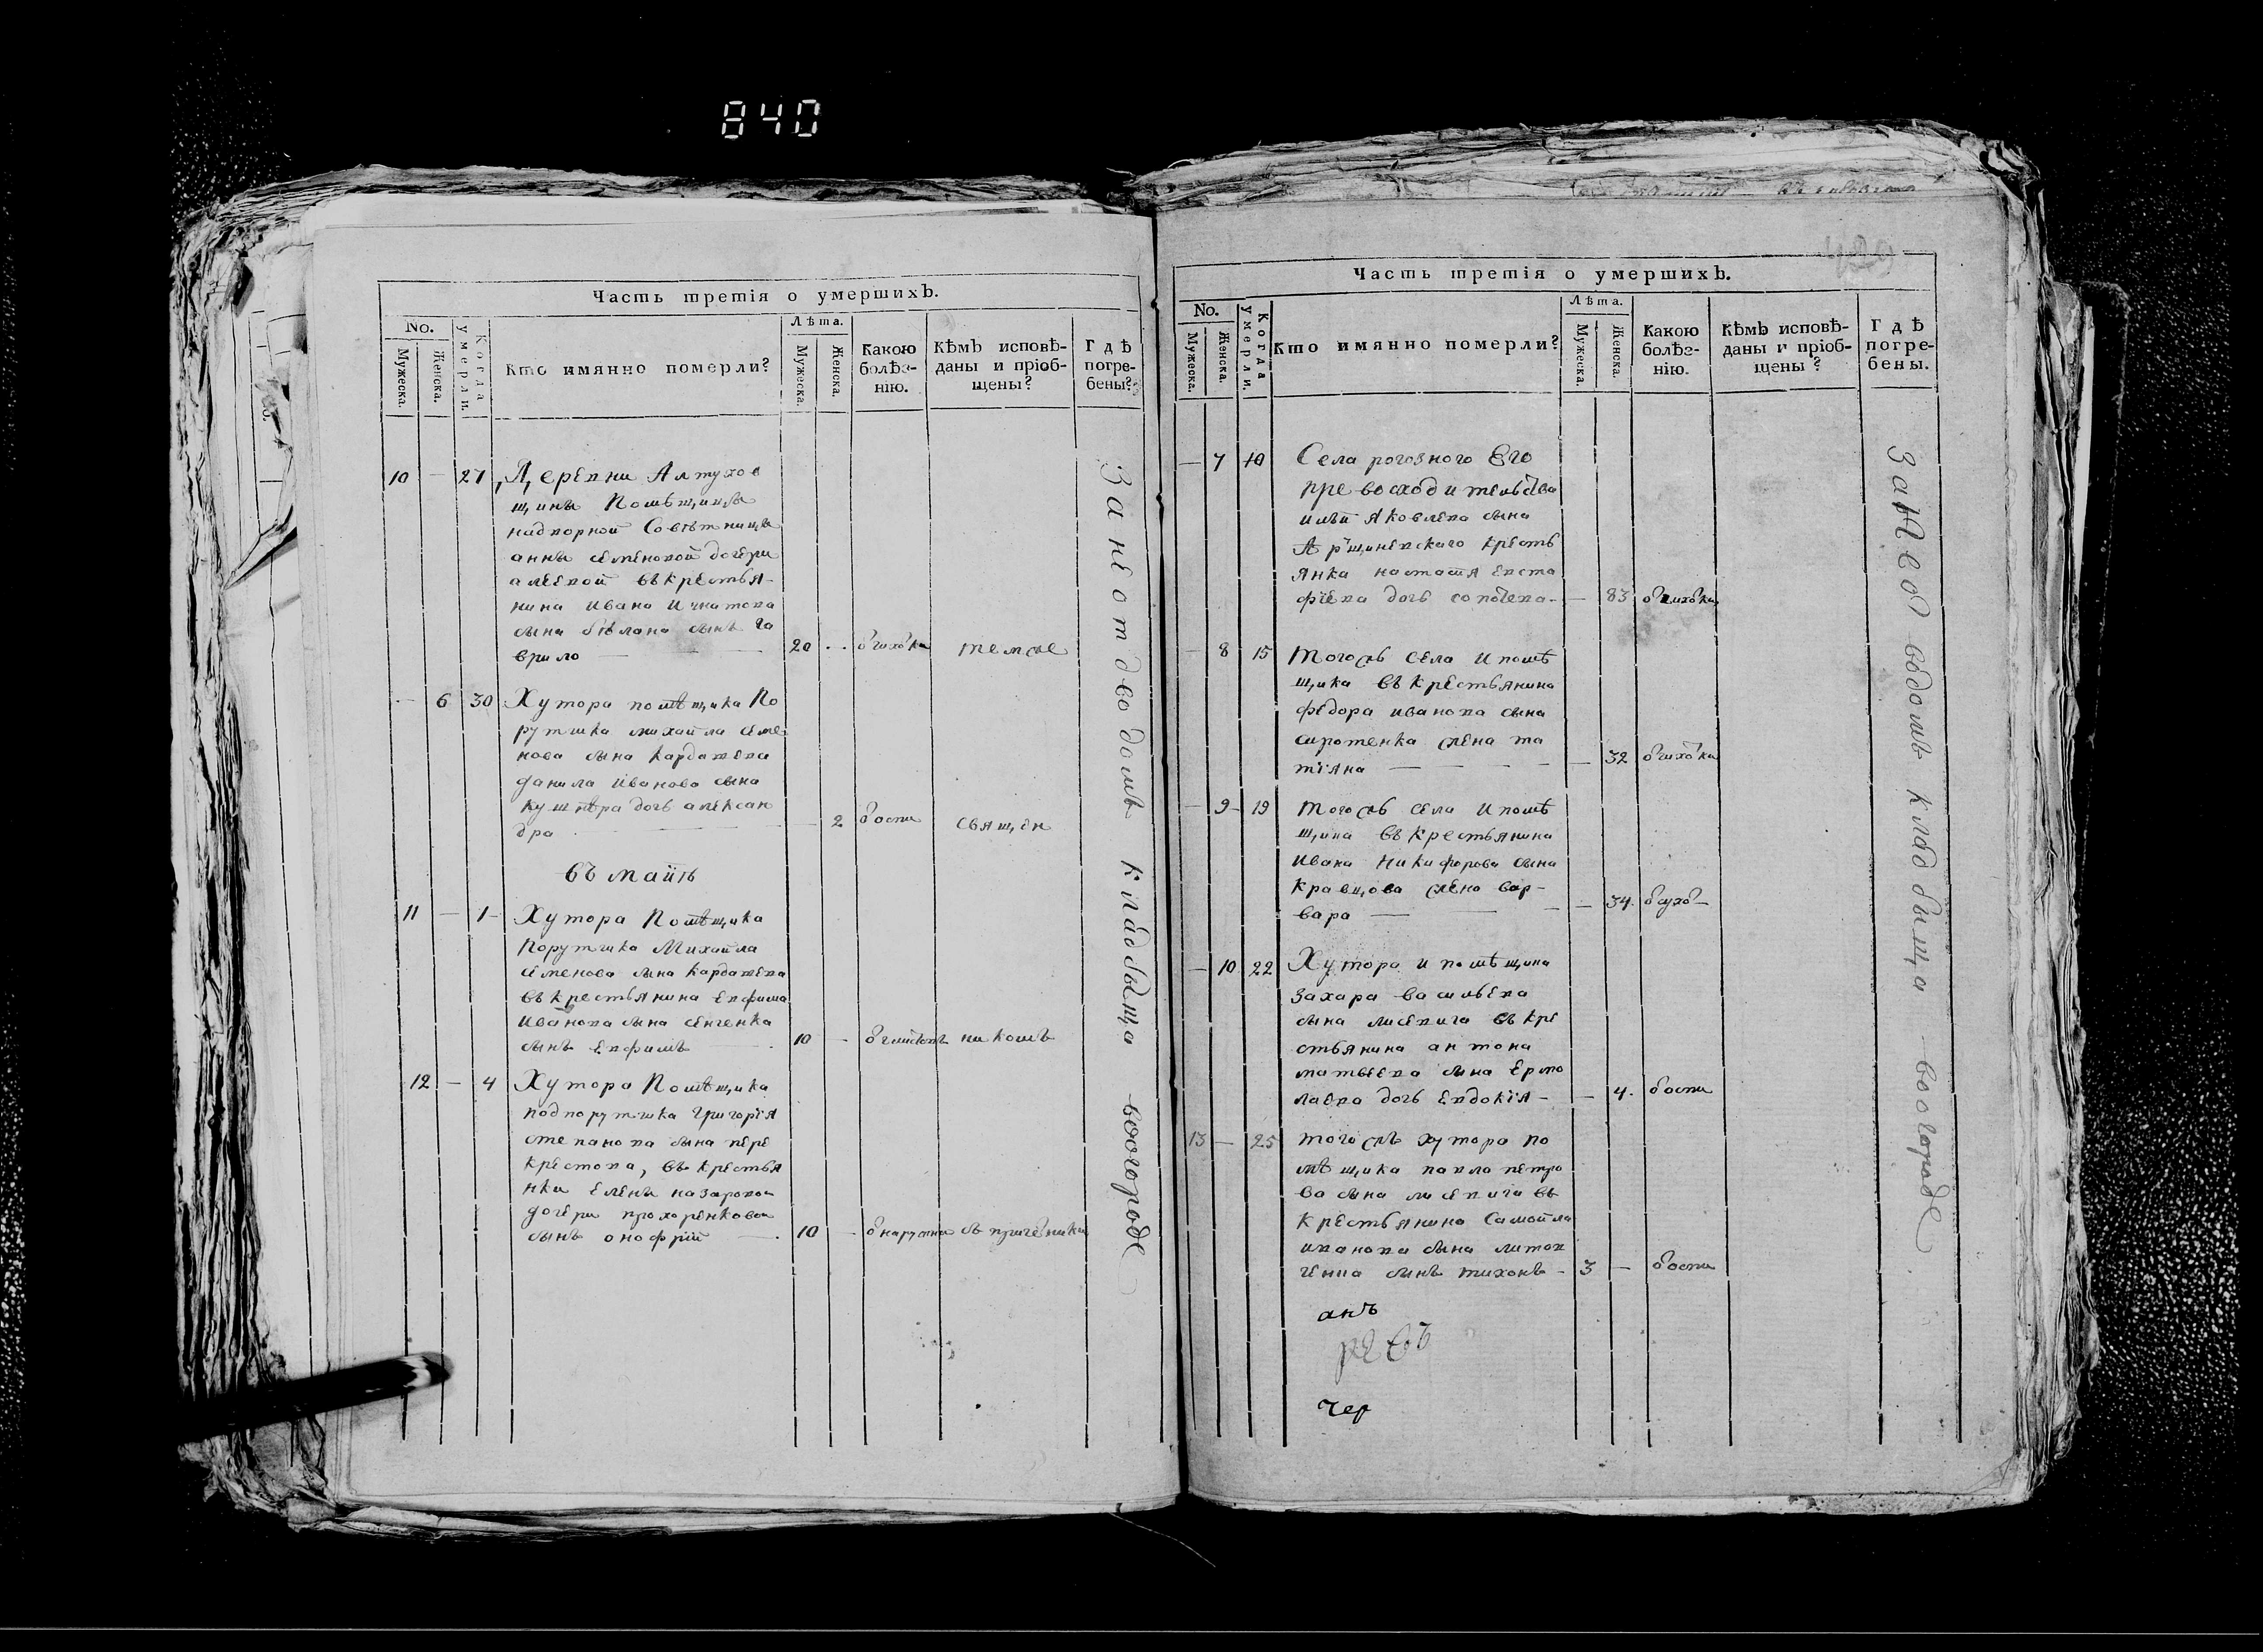 840
Часть третія о умершихъ.
No.
Мужеска.
Женска.
Когда умерли.
Кто имянно померли?
Лѣта.
Мужеска.
Женска.
Какою
болѣз-
нію.
Кѣмъ исповѣ-
даны и пріоб-
щены?
Гдѣ
погре-
бены?
10 — 27 Деревни Алтухов
щины Помѣщицы
надворной Совѣтницы
анны семеновой дочери
въ крестья-
нина ивана игнатова
сына бѣлана сынъ га
врило — 20
— 6 30 Хутора помѣщика По
рутчика михайла семе
нова сына кардашева
данила иванова сына
кушнѣра дочь алексан
дра — 2 воспи священ
въ маіи
11 — 1 Хутора Помѣщика
Порутчика Михайла
семенова сына кардашева
въ крестьянина евфима
иванова сына сенченка
сынъ евфимъ 10 — никомъ
12 — 4 Хутора Помѣщика
подпорутчика григорія
степанова сына пере
крестова, въ крестья
нки елены назаровой
дочери прохоренковой
сынъ онофрій — 10
За неотводомъ кладбыща вогороде
Часть третія о умершихъ.
No.
Мужеска.
Женска.
Когда умерли.
Кто имянно померли?
Лѣта.
Мужеска.
Женска.
Какою
болѣз-
нію.
Кѣмъ исповѣ-
даны и пріоб-
щены?
Гдѣ
погре-
бены.
— 7 10 Села рогозного Его
превосходительства
яковлева сына
кресть
янка настася евста
фіева дочь — 83
— 8 15 тогожъ села и помѣ
щика въ крестьянина
федора иванова сына
сиротенка жена та
тіяна — 32
— 9 19 тогожъ села и помѣ
щика въ крестьянина
ивана никифорова сына
кравцова жена вар-
вара — 34
— 10 22 Хутора и помѣщика
захара васильева
сына лисевича въ кре
стьянина антона
матвеева сына ермо
лаева дочь евдокія — 4 воспи
13 — 25 тогожъ хутора по
мѣщика павла петро
ва сына лисевича въ
крестьянина самойла
иванова сына литов
ченка сынъ тихонъ — 3 — воспи
анъ
чер
кладбыща вогороде